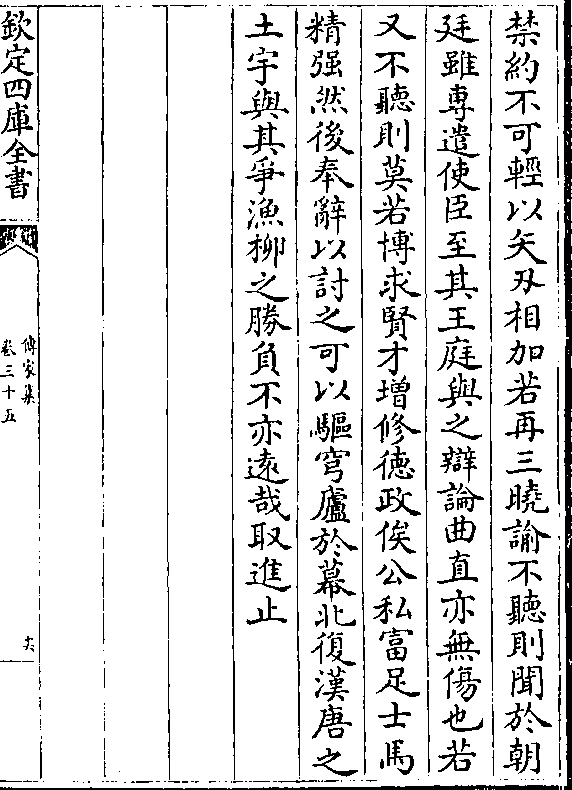 禁約不可輕以矢刄相加若再三曉諭不聽則聞於朝
廷雖專遣使臣至其王庭與之辯論曲直亦無傷也若
又不聽則莫若博求賢才增修徳政俟公私富足士馬
精强然後奉辭以討之可以驅穹廬於幕北復漢唐之
土宇與其爭漁柳之勝負不亦遠哉取進止
欽定四庫全書
傳家集
卷三十五
十六